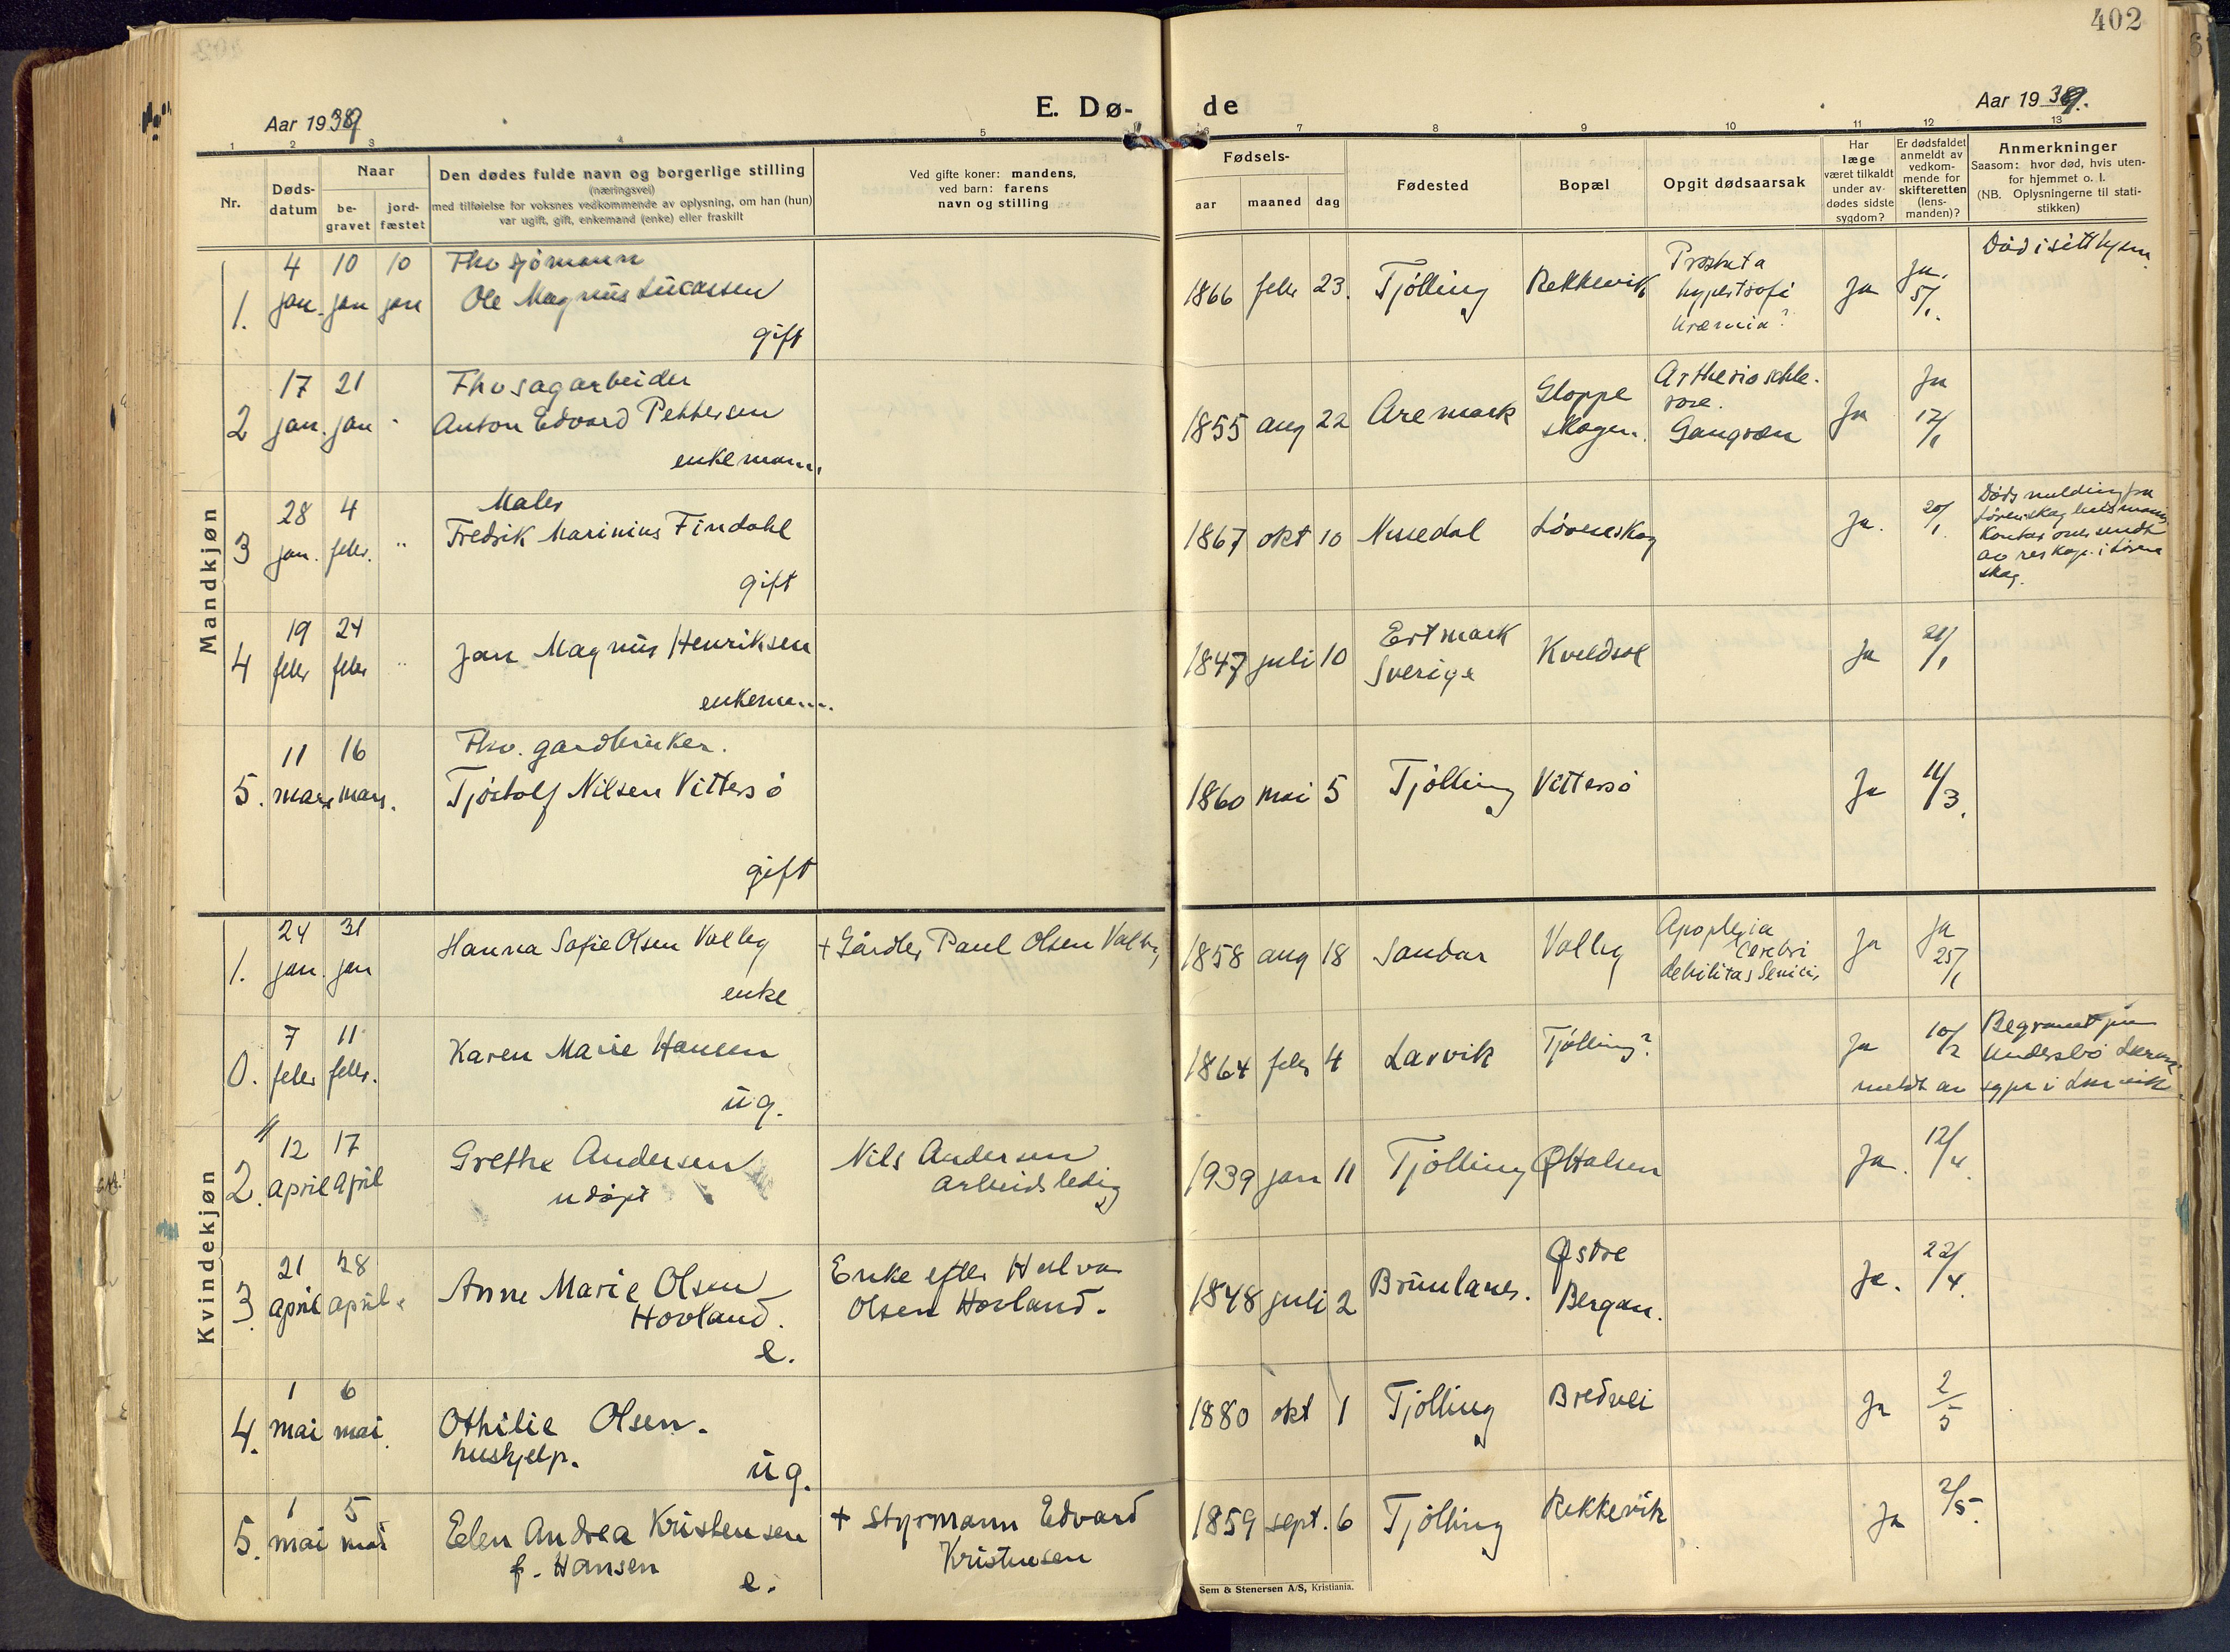 402
Aar 1939
E. Dø-
de
Aar 1939.
1 2 3 4 5 6 7 8 9 10 11 12 13
Nr.
Døds-
datum
Naar
be-
gravet
jord-
fæstet
Den dødes fulde navn og borgerlige stilling
(næringsvei)
med tilføielse for voksnes vedkommende av oplysning, om han (hun)
var ugift, gift, enkemand (enke) eller fraskilt
Ved gifte koner: mandens,
ved barn: farens
navn og stilling
Fødsels-
aar maaned dag
Fødested
Bopæl
Opgit dødsaarsak
Har
læge
været tilkaldt
under av-
dødes sidste
sygdom?
Er dødsfaldet
anmeldt av
vedkom-
mende for
skifteretten
(lens-
manden)?
Anmerkninger
Saasom: hvor død, hvis uten-
for hjemmet o. l.
(NB. Oplysningerne til stati-
stikken)
Mandkjøn
1.
4 jan. 10 jan 10 jan
Fhv sjömann
Ole Magnus Lucassen
gift
1866 febr 23. Tjölling Rekkevik
Prostata
hypertrofi
Uræmia?
Ja
Ja.
5/1.
Död i sitt hjem
2
17 jan. 21 jan "
Fhv sagarbeider
Anton Edvard Pettersen
enkemann.
1855 aug 22 Aremark
Gloppe
skogen.
Artherioschle-
rose.
Gangræn
Ja
Ja
17/1
3
28 jan. 4 febr. "
Maler
Fredrik Marinius Findahl
gift
1867 okt 10 Nissedal Lörenskog
Ja.
Dödsmelding fra
Lörenskog lensmanns
Kontor oversendt
av res kap. i Lören
skog.
4
19 febr 24 febr "
Jan Magnus Henriksen
enkemann.
1847 juli 10
Ertmark
Sverige
Kveldsol
Ja
5.
11 mars 16 mars.
Fhv. gardbruker.
Tjöstolf Nilsen Vittersö
gift
1860 mai 5 Tjölling Vittersö
Ja
11/3.
Kvindekjøn
1.
24 jan. 31 jan
Hanna Sofie Olsen Valby
enke
+ Gårdbr Paul Olsen Valby
1858 aug 18 Sandar Valby
Apoplexia
Cerebri
debilitas Senilis
Ja
Ja
25/1
0.
7 febr 11 febr.
Karen Marie Hansen
ug.
1864 febr 4 Larvik Tjölling?
Ja
10/2
Begravet på
Undersbo
meldt av sypr i Larvik
2.
12 april 17 april
Grethe Andersen
udöpt
Nils Andersen
arbeidsledig
1939 jan 11 Tjölling
Ja.
12/4.
3.
21 april 28 april
Anne Marie Olsen
Hovland.
e.
Enke efter Halvor
Olsen Hovland.
1848 juli 2 Brunlanes.
Østre
Bergan.
Ja.
22/4.
4.
1 mai 6 mai.
Othilie Olsen.
hushjelp.
ug.
1880 okt 1 Tjölling Bredvei
Ja
2/5
5.
1 mai 5 mai
Elen Andrea Kristensen
f. Hansen
e.
+ Styrmann Edvard
Kristensen
1859 sept. 6 Tjölling Rekkevik
Ja
2/5.
Sem & Stenersen A/S, Kristiania.